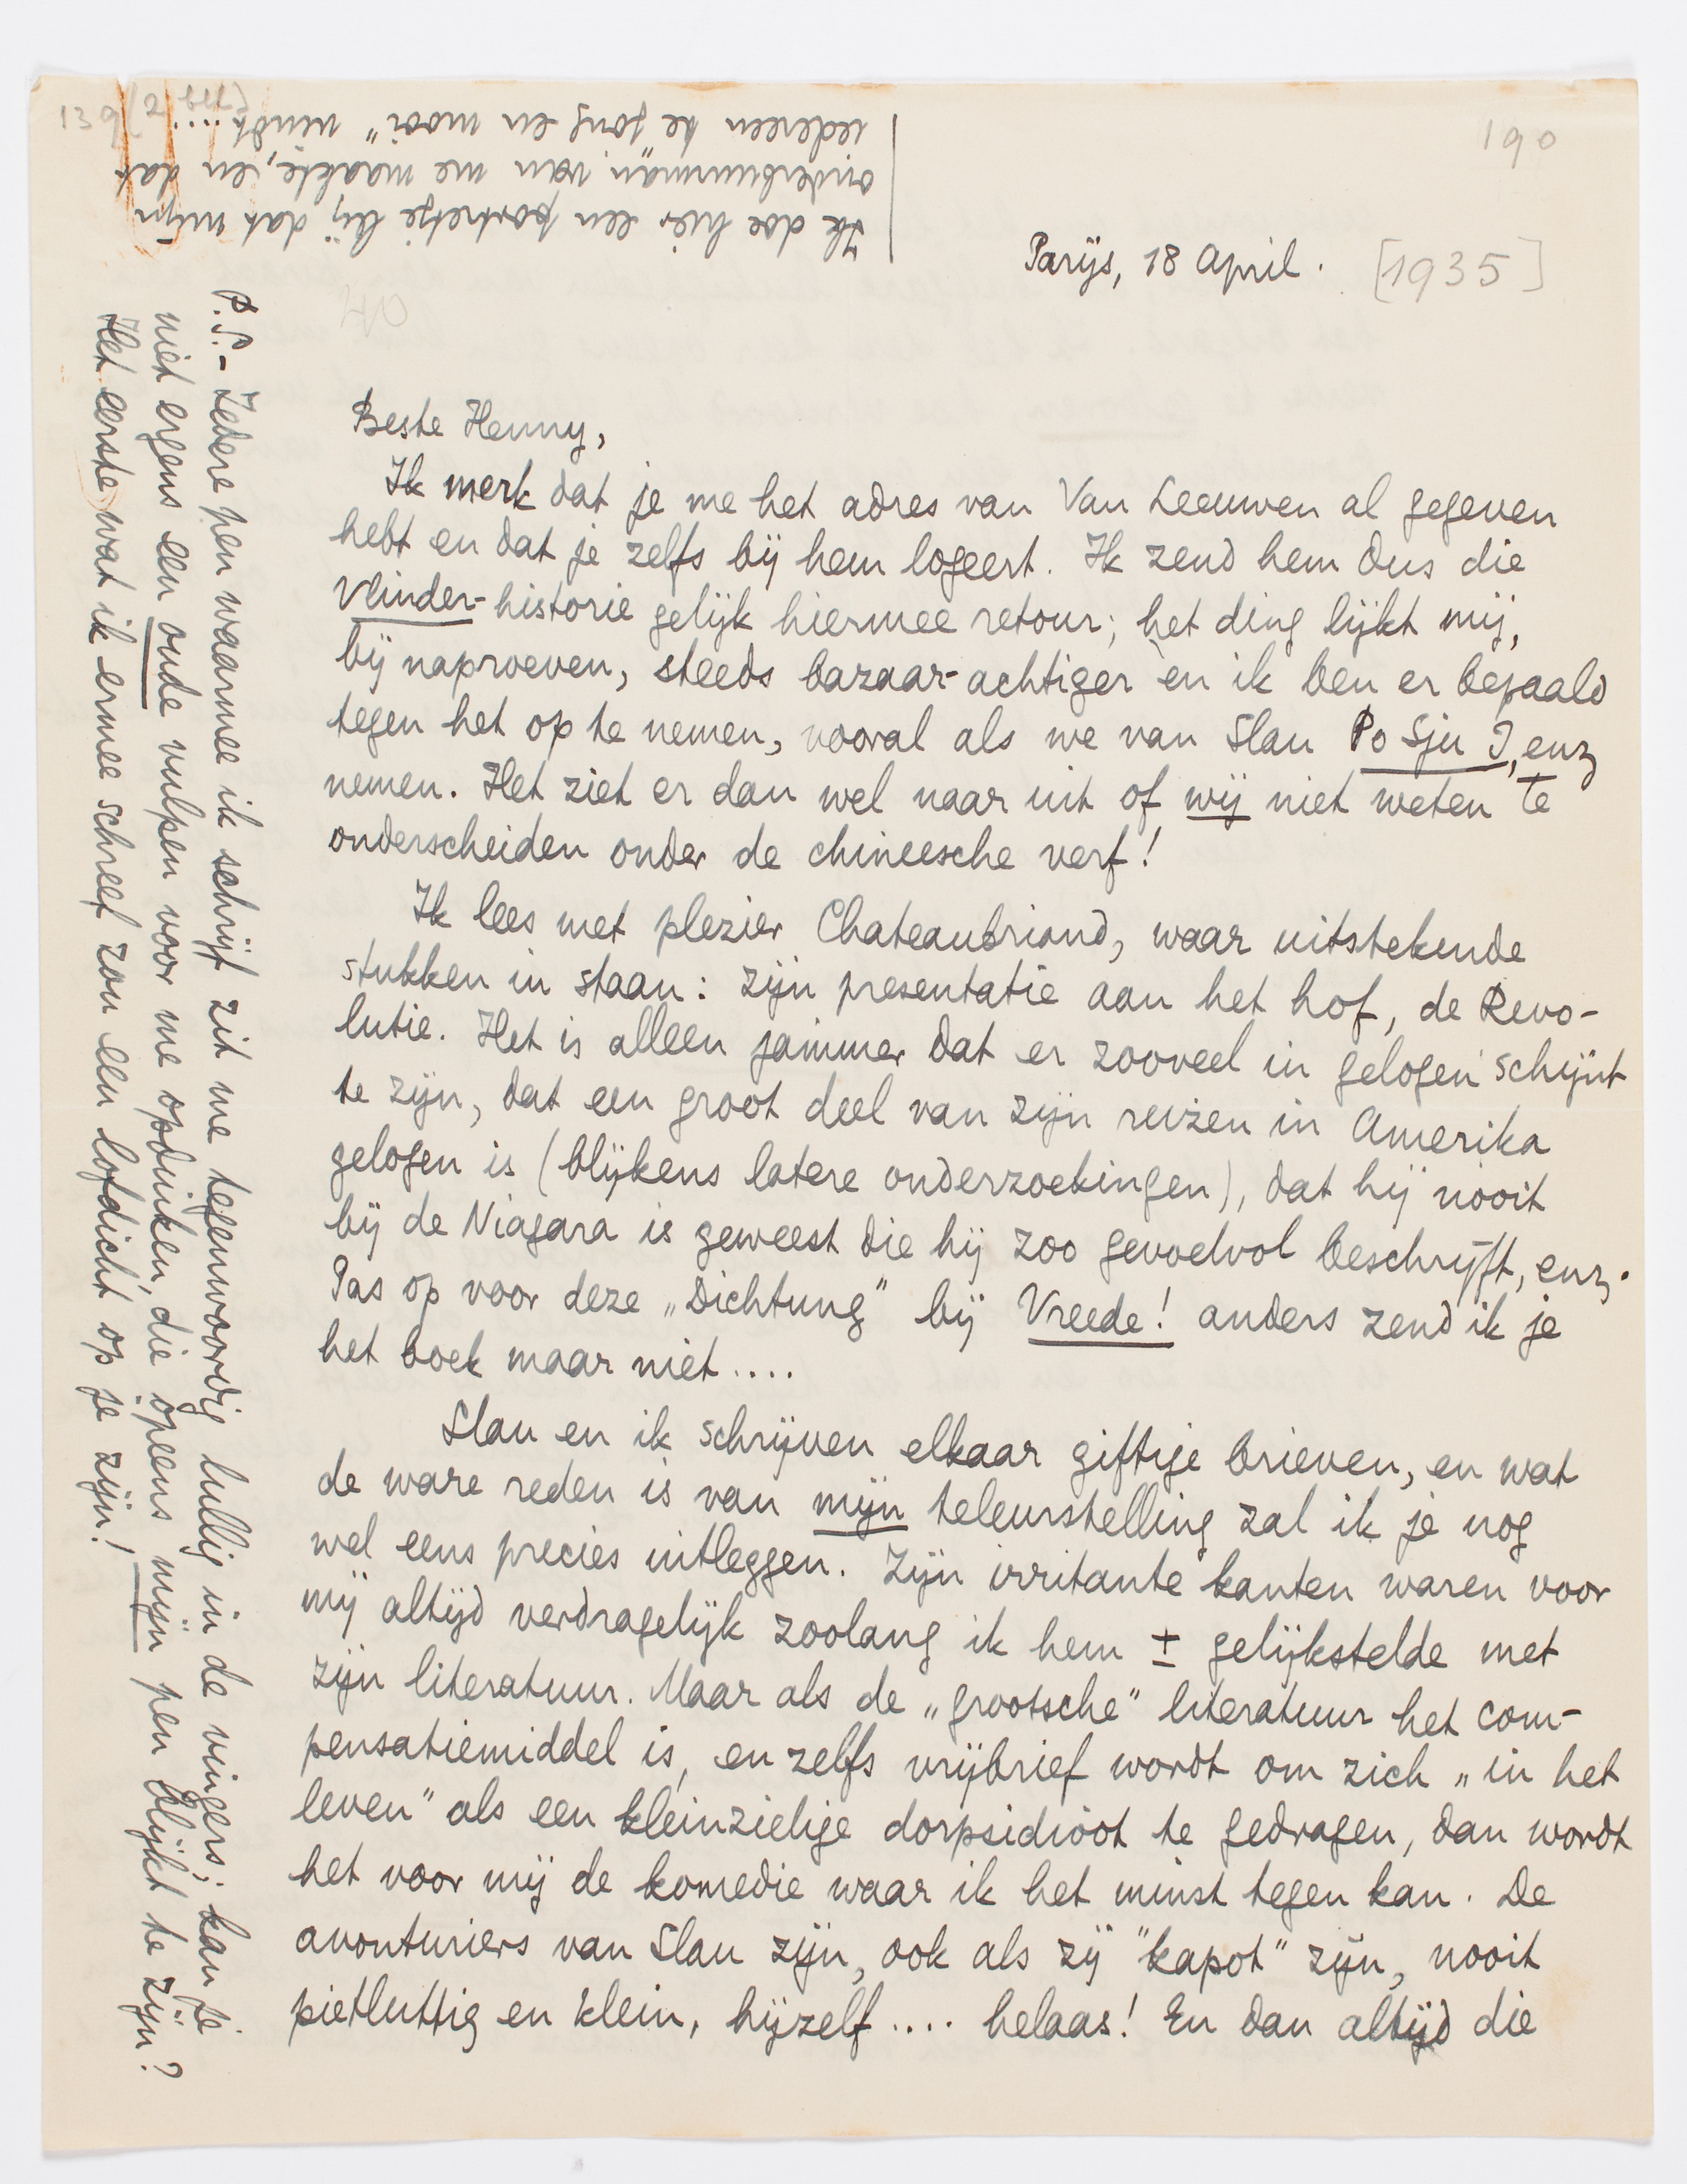 190
Parijs, 18 April. [1935]
Beste Henny,
Ik merk dat je me het adres van Van Leeuwen al gegeven
hebt en dat je zelfs bij hem logeert. Ik zend hem dus die
Vlinder-historie gelijk hiermee retour; het ding lijkt mij,
bij naproeven, steeds bazaar-achtiger en ik ben er bepaald
tegen het op te nemen, vooral als we van Slau Po Sju I, enz
nemen. Het ziet er dan wel naar uit of wij niet weten te
onderscheiden onder de chineesche verf!
Ik lees met plezier Chateaubriand, waar uitstekende
stukken in staan: zijn presentatie aan het hof, de Revo-
lutie. Het is alleen jammer dat er zooveel in gelogen schijnt
te zijn, dat een groot deel van zijn reizen in Amerika
gelogen is (blijkens latere onderzoekingen), dat hij nooit
bij de Niagara is geweest die hij zoo gevoelvol beschrijft, enz.
Pas op voor deze „Dichtung" bij Vreede! anders zend ik je
het boek maar niet....
Slau en ik schrijven elkaar giftige brieven, en wat
de ware reden is van mijn teleurstelling zal ik je nog
wel eens precies uitleggen. Zijn irritante kanten waren voor
mij altijd verdragelijk zoolang ik hem ± gelijkstelde met
zijn literatuur. Maar als de „grootsche" literatuur het com-
pensatiemiddel is, en zelfs vrijbrief wordt om zich „in het
leven" als een kleinzielige dorpsidioot te gedragen, dan wordt
het voor mij de komedie waar ik het minst tegen kan. De
avonturiers van Slau zijn, ook als zij "kapot" zijn, nooit
pietluttig en klein, hijzelf .... helaas! En dan altijd die
P.S.- Iedere pen waarmee ik schrijf zit me tegenwoordig lullig in de vingers; kan je
niet ergens een oude vulpen voor me opduiken, die opeens mijn pen blijkt te zijn?
Het eerste wat ik ermee schreef zou een lofdicht op je zijn!
Ik doe hier een portretje bij dat mijn
onderbuurman van me maakte, en dat
iedereen te jong en „mooi" vindt ...